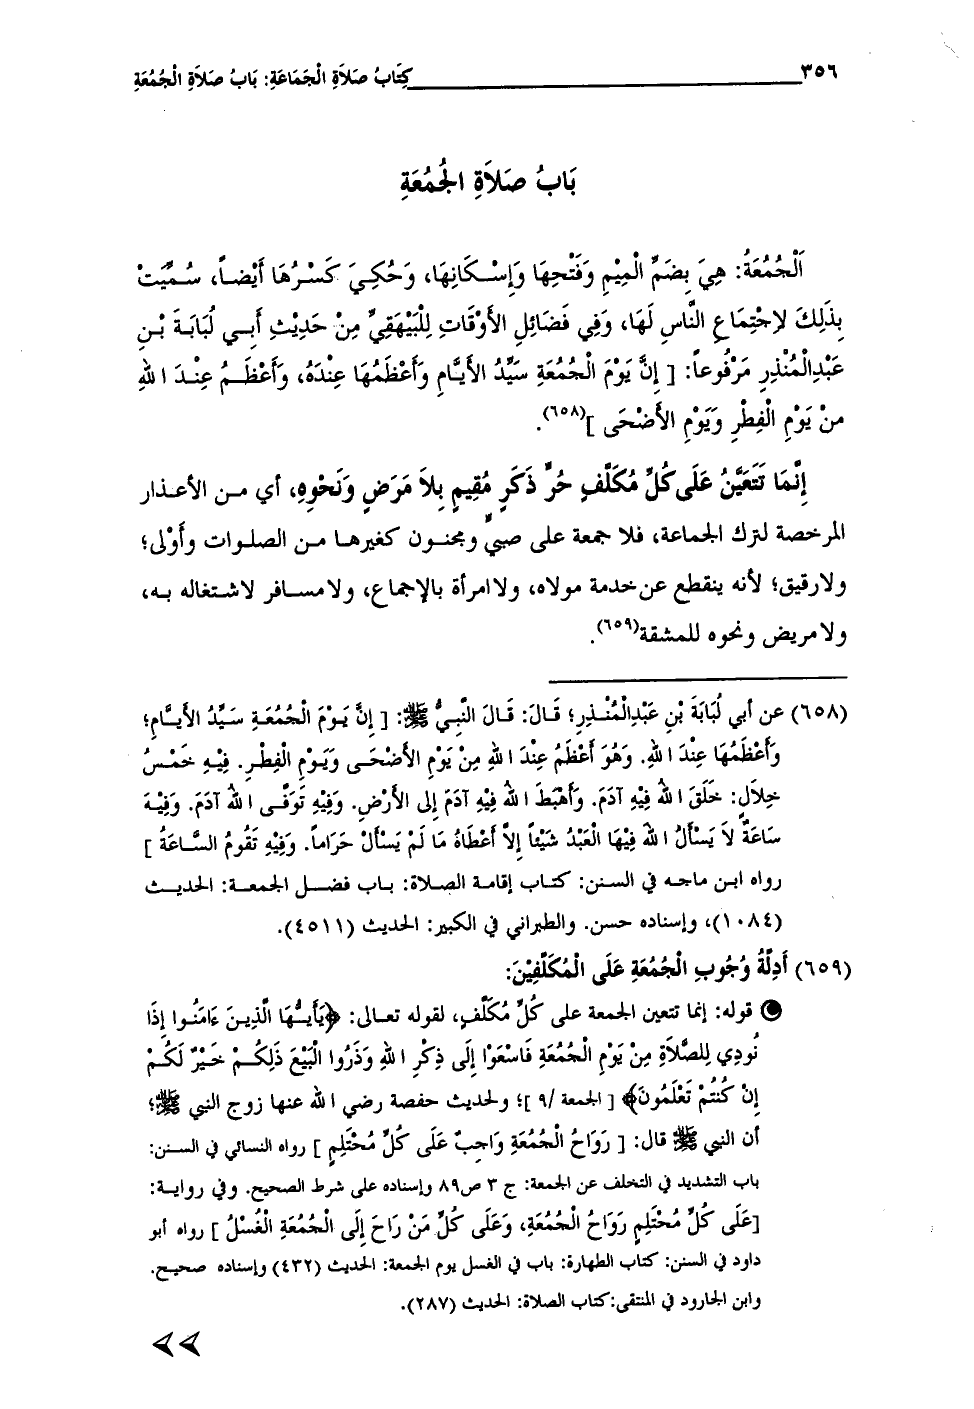 ٣٥٦ كِتَابُ صَلاَةِ الْجَمَاعَةِ: بَابُ صَلاَةِ الْجُمُعَةِ
بَابُ صَلاَةِ الْجُمُعَةِ
اَلْجُمُعَةُ: هِيَ بِضَمِّ الْمِيْمِ وَفَتْحِهَا وَإِسْكَانِهَا، وَحُكِيَ كَسْرُهَا أَيْضاً، سُمِّيَتْ
بِذَلِكَ لاِجْتِمَاعِ النَّاسِ لَهَا، وَفِي فَضَائِلِ الأَوْقَاتِ لِلْبَيْهَقِيِّ مِنْ حَدِيْثِ أَبِي لُبَابَةَ بْنِ
عَبْدِالْمُنْذِرِ مَرْفُوعاً: [ إِنَّ يَوْمَ الْجُمُعَةِ سَيِّدُ الأَيَّامِ وَأَعْظَمُهَا عِنْدَهُ، وَأَعْظَمُ عِنْدَ اللهِ
مِنْ يَوْمِ الْفِطْرِ وَيَوْمِ الأَضْحَى ](٦٥٨).
إِنَّمَا تَتَعَيَّنُ عَلَى كُلِّ مُكَلَّفٍ حُرٍّ ذَكَرٍ مُقِيمٍ بِلاَ مَرَضٍ وَنَحْوِهِ، أي من الأعذار
المرخصة لترك الجماعة، فلا جمعة على صبيٍّ ومجنون كغيرها من الصلوات وأَوْلى؛
ولا رقيق؛ لأنه ينقطع عن خدمة مولاه، ولا امرأة بالإجماع، ولا مسافر لاشتغاله به،
ولا مريض ونحوه للمشقة(٦٥٩).
(٦٥٨) عن أبي لُبَابَةَ بْنِ عَبْدِالْمُنْذِرِ؛ قَالَ: قَالَ النَّبِيُّ ﷺ: [ إِنَّ يَوْمَ الْجُمُعَةِ سَيِّدُ الأَيَّامِ؛
وَأَعْظَمُهَا عِنْدَ اللهِ. وَهُوَ أَعْظَمُ عِنْدَ اللهِ مِنْ يَوْمِ الأَضْحَى وَيَوْمِ الْفِطْرِ. فِيْهِ خَمْسُ
خِلاَلٍ: خَلَقَ اللهُ فِيْهِ آدَمَ. وَأَهْبَطَ اللهُ فِيْهِ آدَمَ إِلى الأَرْضِ. وَفِيْهِ تَوَفَّى اللهُ آدَمَ. وَفِيْهِ
سَاعَةٌ لاَ يَسْأَلُ اللهَ فِيْهَا الْعَبْدُ شَيْئاً إِلاَّ أَعْطَاهُ مَا لَمْ يَسْأَلْ حَرَاماً. وَفِيْهِ تَقُومُ السَّاعَةُ ]
رواه ابن ماجه في السنن: كتاب إقامة الصلاة: باب فضل الجمعة: الحديث
(١٠٨٤)، وإسناده حسن. والطبراني في الكبير: الحديث (٤٥١١).
(٦٥٩) أَدِلَّةُ وُجُوبِ الْجُمُعَةِ عَلَى الْمُكَلَّفِيْنَ:
قوله: إنما تتعين الجمعة على كُلِّ مُكَلَّفٍ، لقوله تعالى: ﴿يَأَيُّهَا الَّذِينَ ءَامَنُوا إِذَا
نُودِي لِلصَّلاَةِ مِنْ يَوْمِ الْجُمُعَةِ فَاسْعَوْا إِلَى ذِكْرِ اللهِ وَذَرُوا الْبَيْعَ ذَلِكُمْ خَيْرٌ لَكُمْ
إِنْ كُنْتُمْ تَعْلَمُونَ﴾ [ الجمعة /٩ ]؛ ولحديث حفصة رضي الله عنها زوج النبي ﷺ؛
أن النبي ﷺ قال: [ رَوَاحُ الْجُمُعَةِ وَاجِبٌ عَلَى كُلِّ مُحْتَلِمٍ ] رواه النسائي في السنن:
باب التشديد في التخلف عن الجمعة: ج ٣ ص٨٩ وإسناده على شرط الصحيح. وفي رواية:
[عَلَى كُلِّ مُحْتَلِمٍ رَوَاحُ الْجُمُعَةِ، وَعَلَى كُلِّ مَنْ رَاحَ إِلَى الْجُمُعَةِ الْغُسْلُ ] رواه أبو
داود في السنن: كتاب الطهارة: باب في الغسل يوم الجمعة: الحديث (٤٣٢) وإسناده صحيح.
وابن الجارود في المنتقى:كتاب الصلاة: الحديث (٢٨٧).